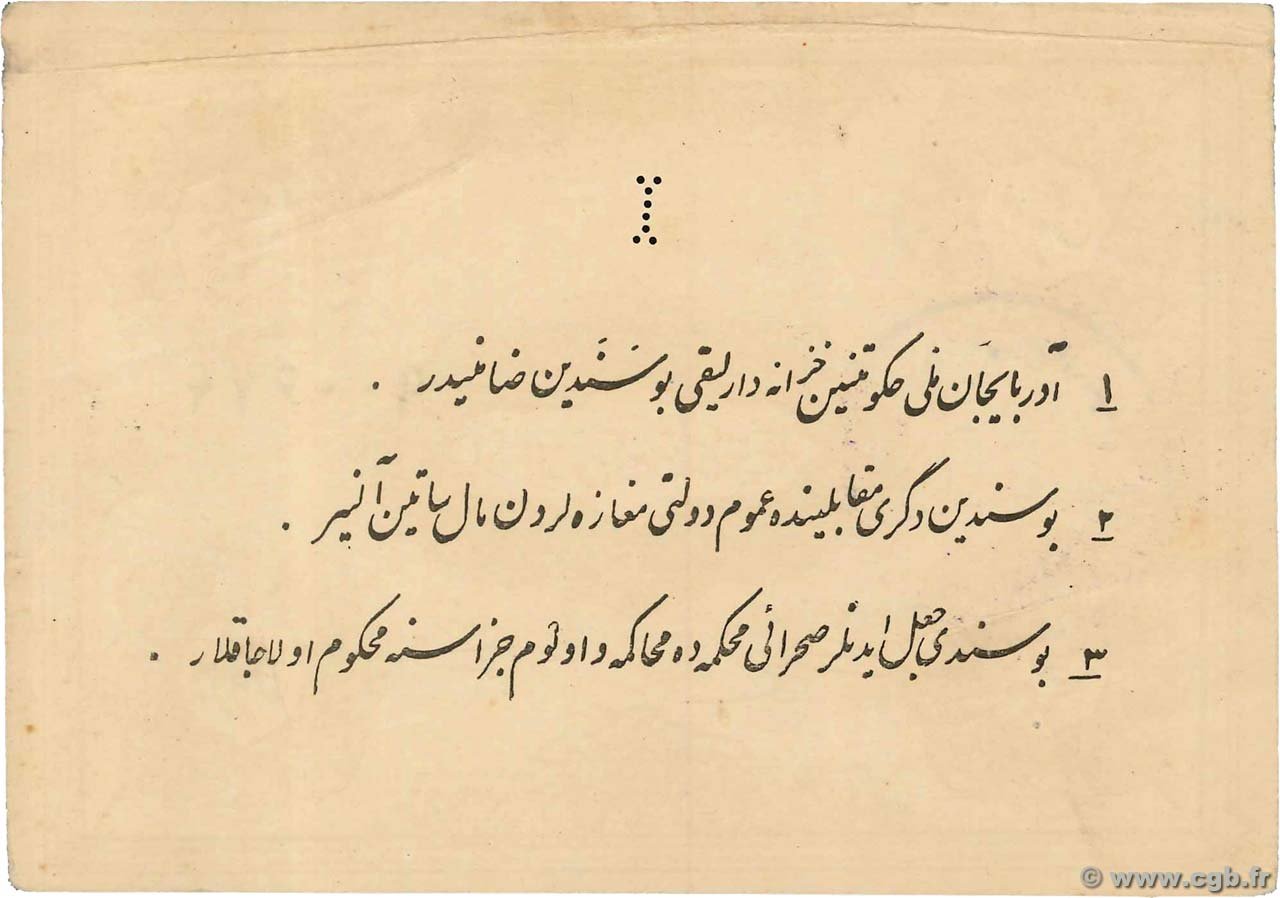 ۱ آذربایجَان ملی حکومتنین خزانه داریلقی بو سَنَدین ضامنیدر .
۲ بو سندین دگری مقابلینده عموم دولتی مغازه لردن مال ساتین آلنیر .
۳ بو سندی جعل ایدنلر صحرائی محکمه ده محاکمه و اولوم جزاسنه محکوم اولاجاقلار .
© www.cgb.fr